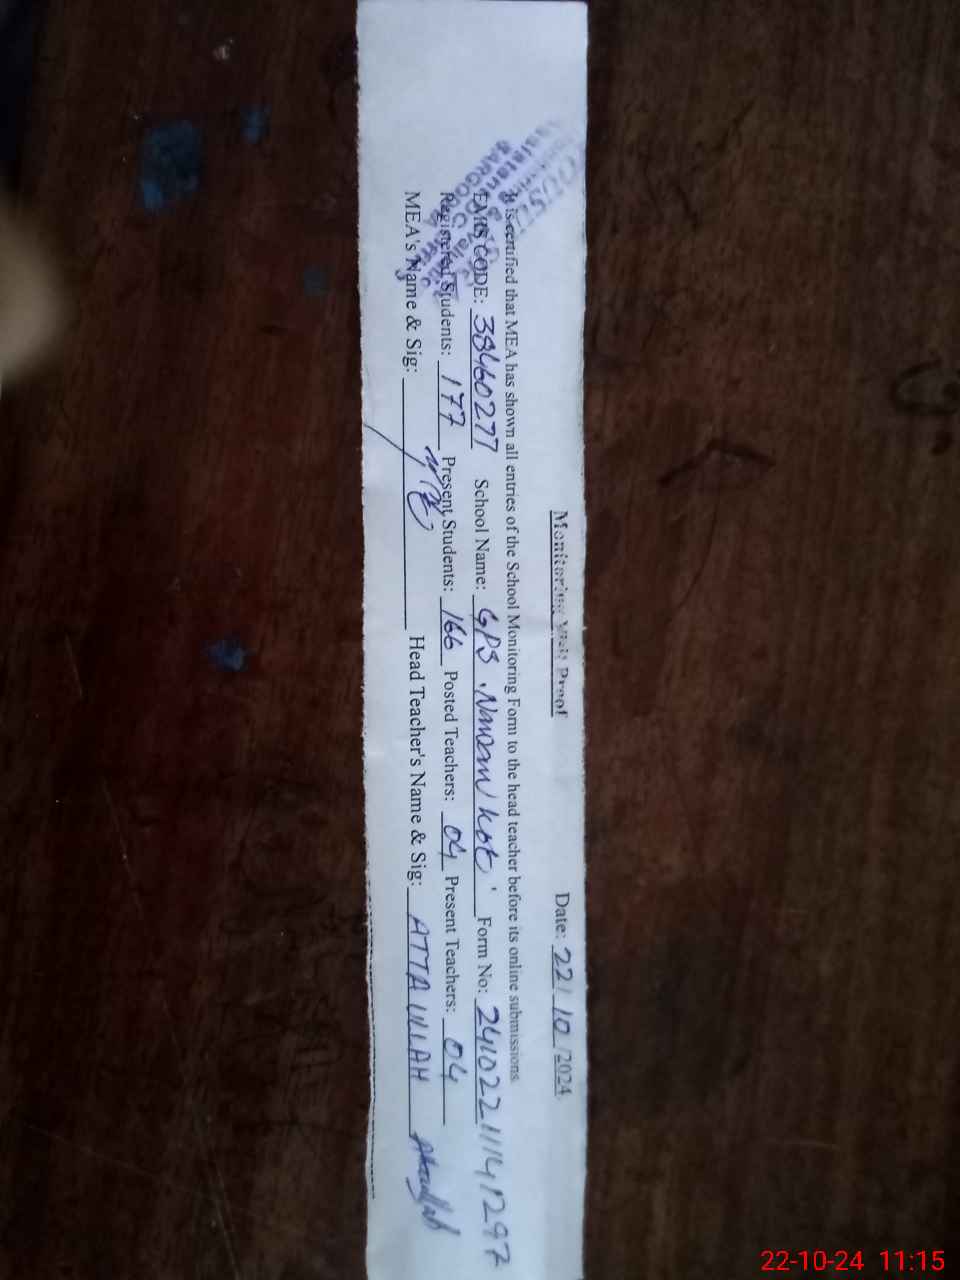 Monitoring Visit Proof
Date: 22/10/2024
It is certified that MEA has shown all entries of the School Monitoring Form to the head teacher before its online submissions.
EMIS CODE: 38460277 School Name: GPS Nawan Kot Form No: 24102211141297
Registered Students: 177 Present Students: 166 Posted Teachers: 04 Present Teachers: 04
MEA's Name & Sig: Head Teacher's Name & Sig: ATTA ULLAH Attaullah
22-10-24 11:15